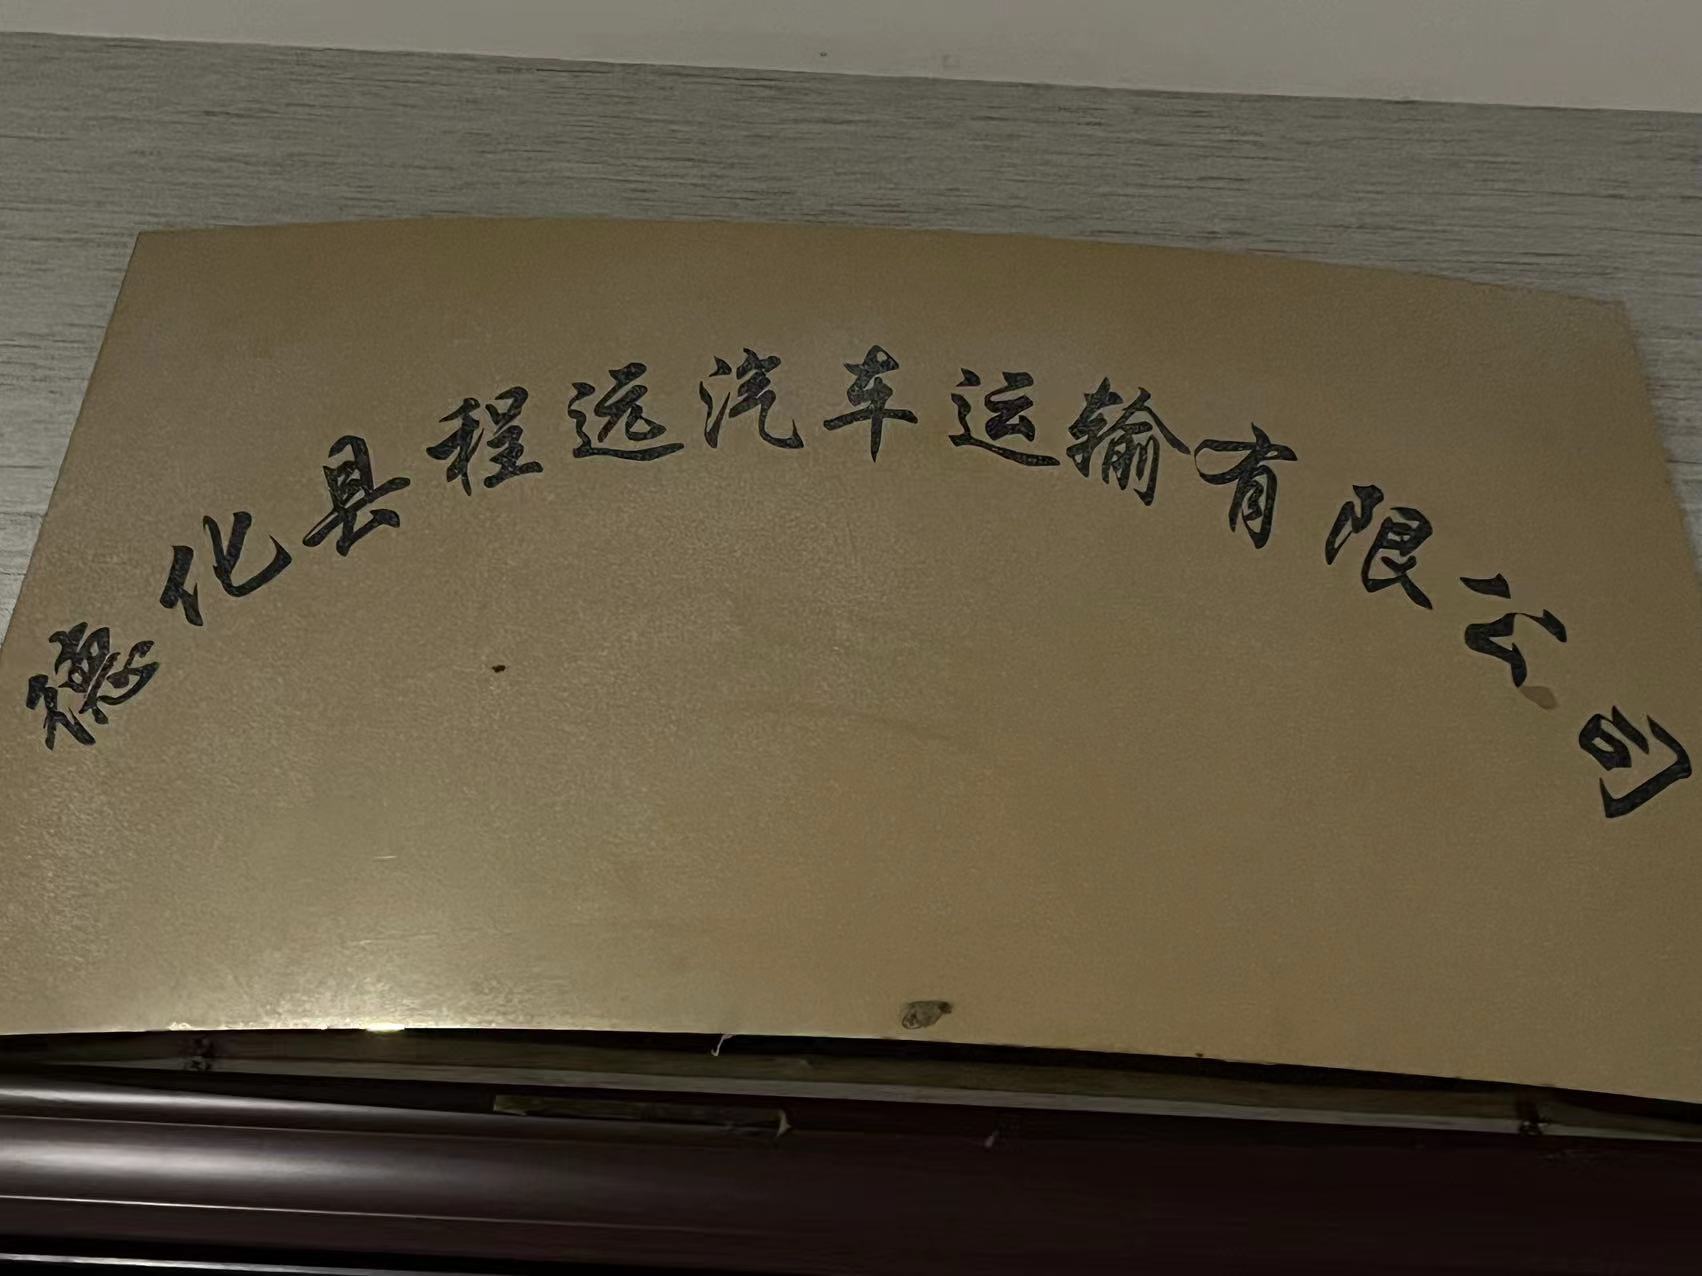 德化县程远汽车运输有限公司